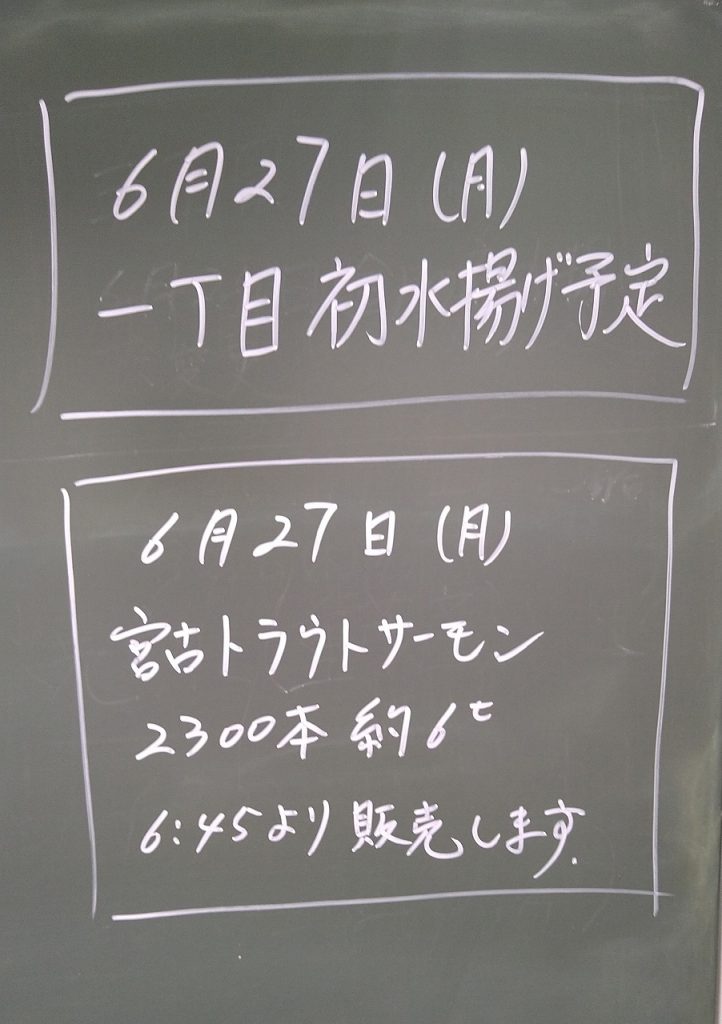 6月27日(月)
一丁目 初水揚げ予定
6月27日(月)
宮古トラウトサーモン
2300本 約6t
6:45より販売します.